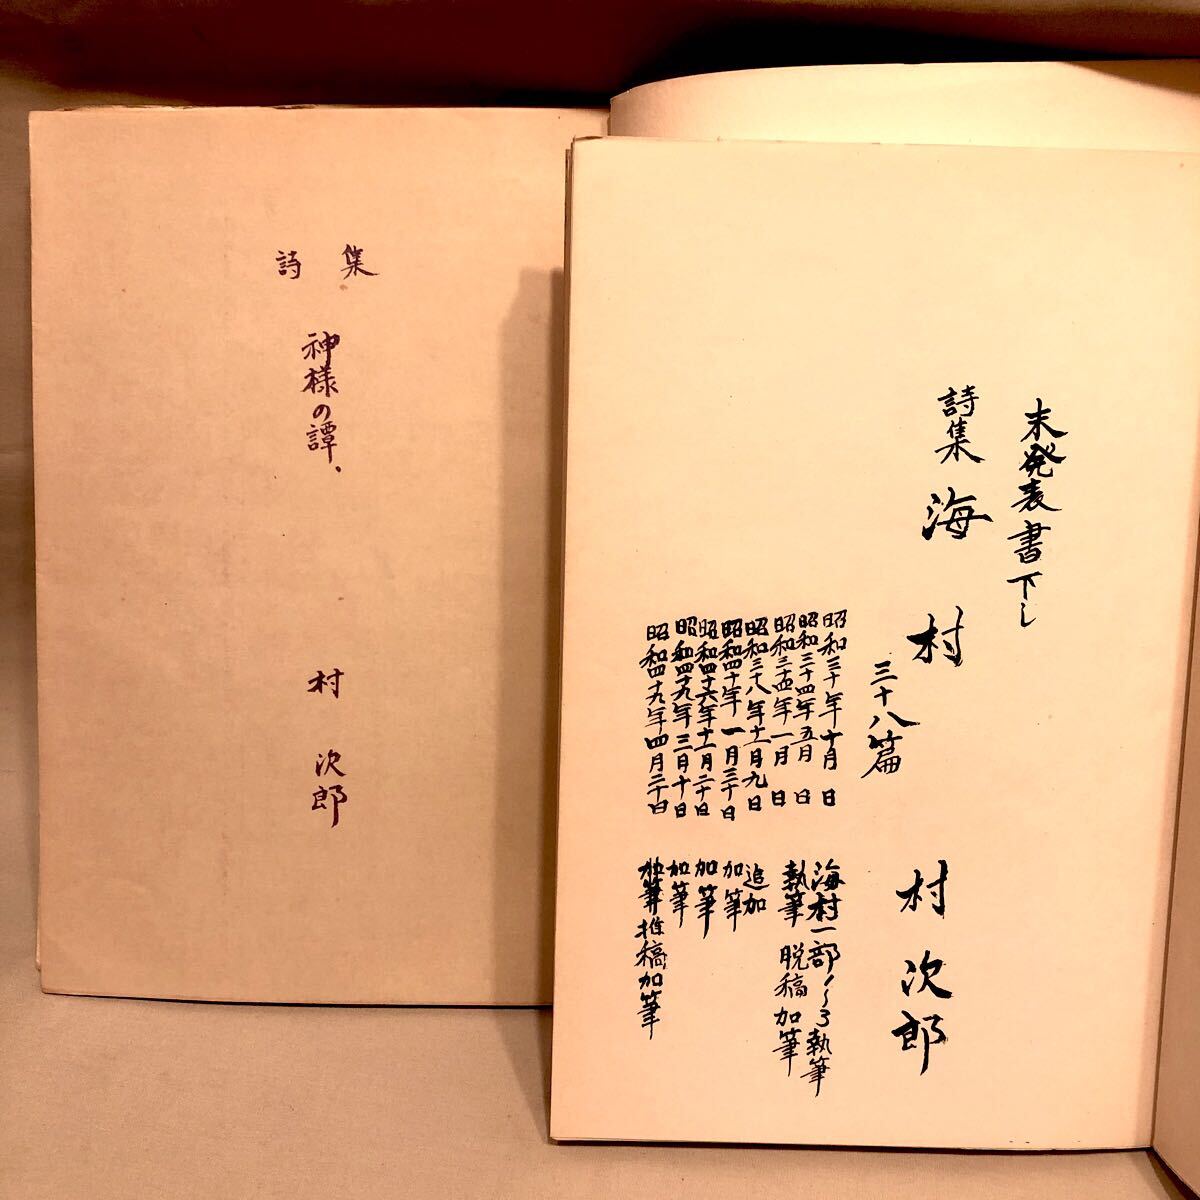 詩集
神様の譚、
村次郎
未発表書下し
詩集 海村
三十八篇
村次郎
昭和三十年十月 日 海村一部1~3執筆
昭和三十四年五月 日 執筆 脱稿 加筆
昭和三十四年一月 日
昭和三十八年十一月九日 追加
昭和四十年一月三十日 加筆
昭和四十六年十一月二十日 加筆
昭和四十九年三月十日 加筆
昭和四十九年四月二十日 加筆推稿加筆